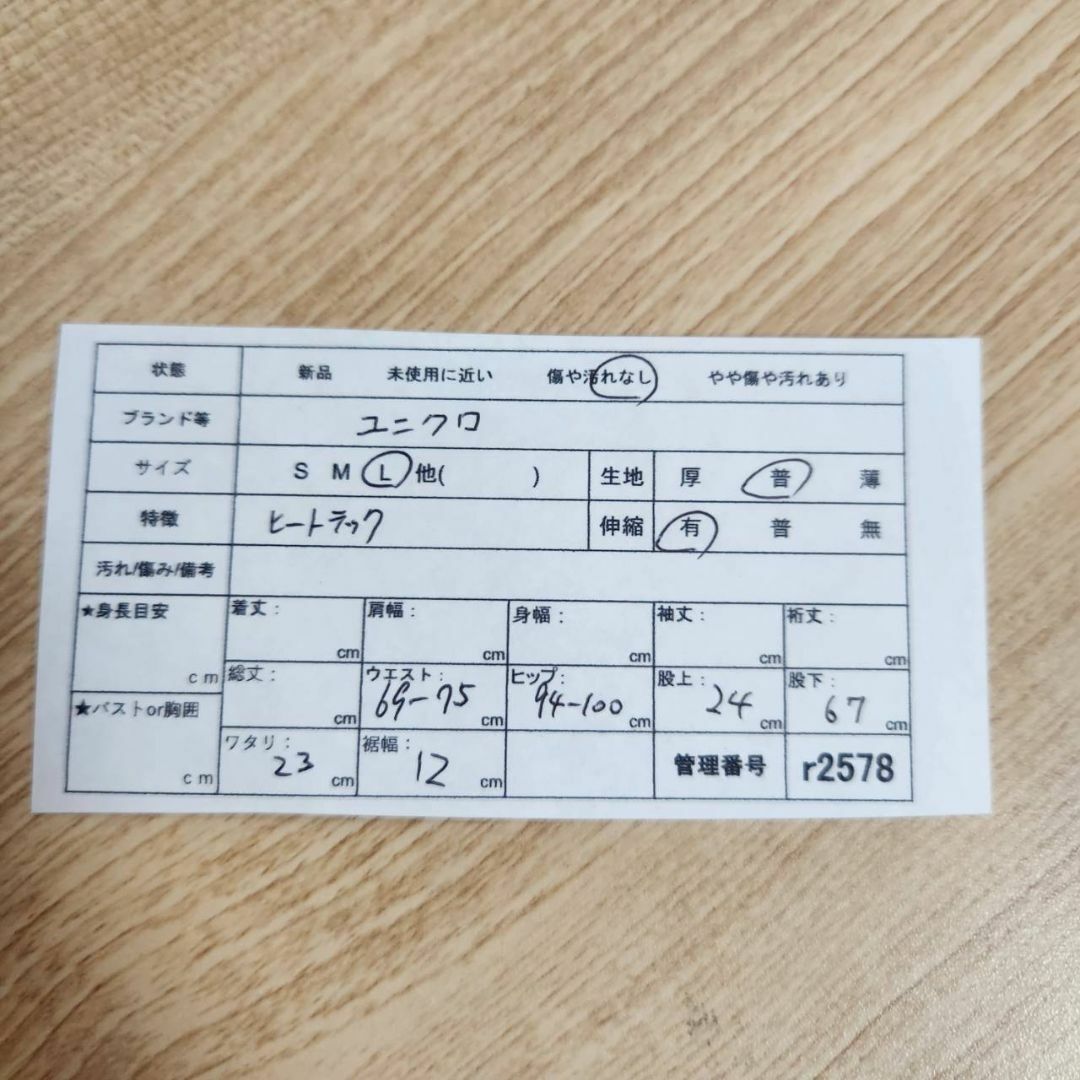 状態 新品 未使用に近い 傷や汚れなし やや傷や汚れあり
ブランド等 ユニクロ
サイズ S M L 他( ) 生地 厚 普 薄
特徴 ヒートテック 伸縮 有 普 無
汚れ/傷み/備考
★身長目安 cm 着丈: cm 肩幅: cm 身幅: cm 袖丈: cm 裄丈: cm
総丈: cm ウエスト: 69-75 cm ヒップ: 94-100 cm 股上: 24 cm 股下: 67 cm
★バストor胸囲 cm ワタリ: 23 cm 裾幅: 12 cm 管理番号 r2578